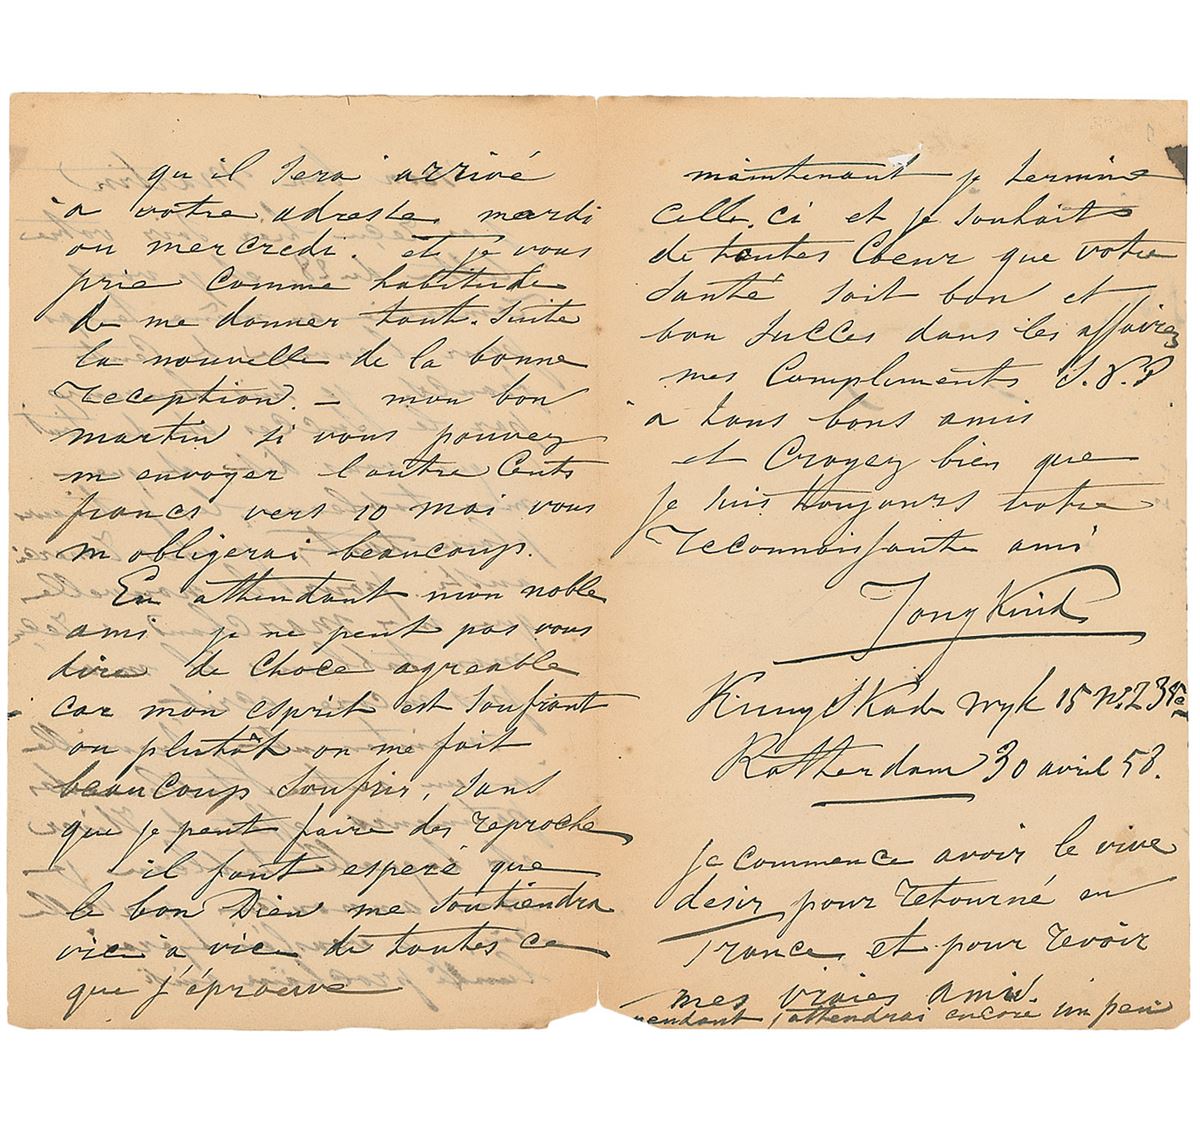 qu il Sera arrivé
a votre adresse, mardi
ou mercredi. et je vous
prie Comme habitude
de me donner tout. Suite
la nouvelle de la bonne
reception. – mon bon
martin si vous pouvez
m envoyer l autre Cents
francs vers 10 mai vous
m obligerai beaucoup.
En attendant mon noble
ami je ne peut pas vous
dire de Choce agreable
car mon esprit est Soufrant
ou plutôt on me fait
beaucoup Soufrir, Sans
que je peut faire des reproche
il faut esperé que
le bon Dieu me Soutiendra
vice a vice de toutes ce
que j'éprouve
maintenant je termine
celle. ci et je Souhaits
de toutes Coeur que votre
Santé Soit bon et
bon Succes dans les affairez
mes Compliments S.V.P
a tous bons amis
et Croyez bien que
je Suis toujours votre
reconnoissante ami
Jongkind
wyk 15 N:
Rotterdam 30 avril 58.
je commence avoir le vive
desir pour retourné en
France et pour revoir
mes vraies amis.
pendant j attendrai encore un peu